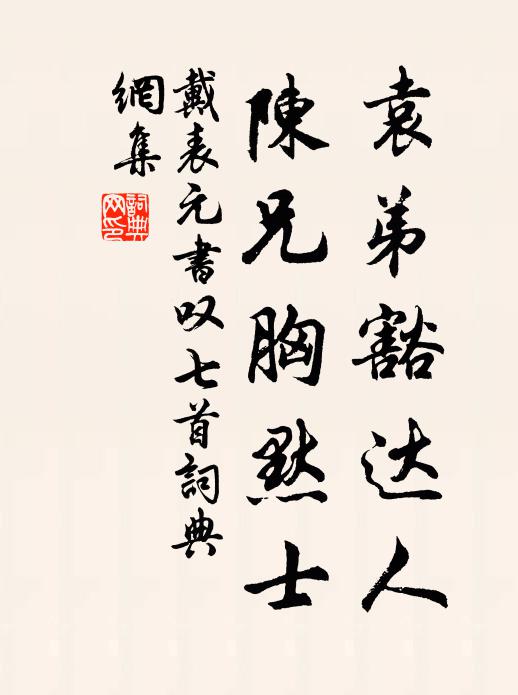 袁弟豁达人
陳兄胸黙士
戴表元書叹七首詞典
網集
詞典網印